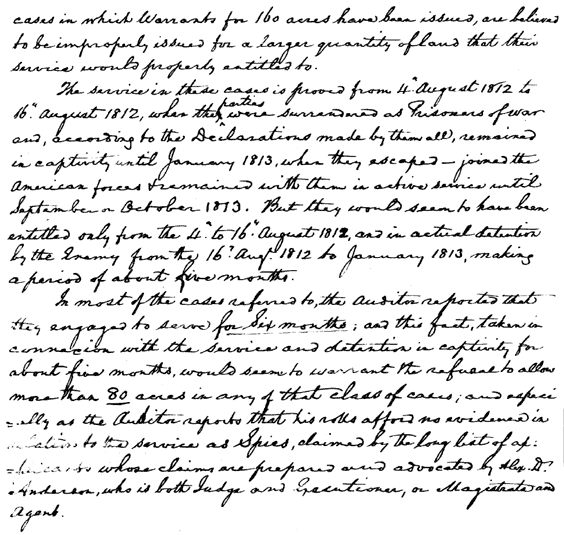 cases in which Warrants for 160 acres have been issued, are believed
to be improperly issued for a larger quantity of land that their
service would properly entitled to.
The service in these cases is proved from 4" August 1812 to
16" August 1812, when the parties were surrendered as Prisoners of war
and, according to the Declarations made by them all, remained
in captivity until January 1813, when they escaped – joined the
American forces & remained with them in active service until
September or October 1813. But they would seem to have been
entitled only from the 4" to 16" August 1812, and in actual detention
by the Enemy from the 16" Augt 1812 to January 1813, making
a period of about five months.
In most of the cases referred to, the Auditor reported that
they engaged to serve for Six months; and this fact, taken in
connexion with the service and detention in captivity for
about five months, would seem to warrant the refusal to allow
more than 80 acres in any of that class of cases; and especi
=ally as the Auditor reports that his rolls afford no evidence in
relation to the service as Spies, claimed by the long list of ap:
=plicants whose claims are prepared and advocated by Alex. D.
Anderson, who is both Judge and Executioner, or Magistrate and
Agent.